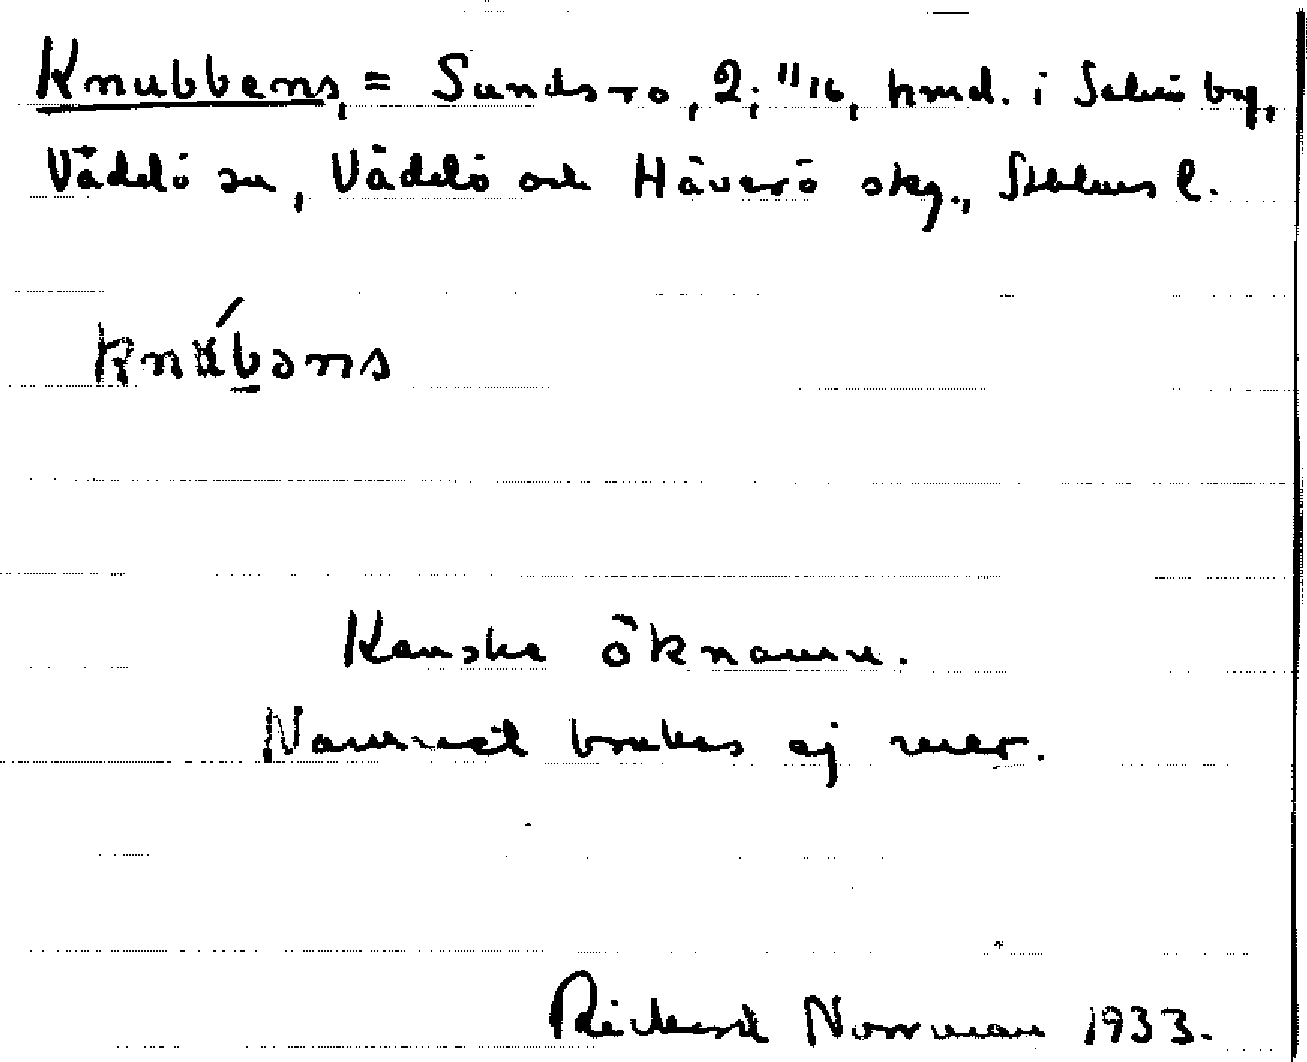 Knubbens, = Sundsro, 2; 11/16, hmd. i Senneby by,
Väddö sn, Väddö och Häverö skg., Sthlms l.
knúbəns
Kanske öknamn.
Namnet brukas ej mer.
Rickard Norrman 1933.